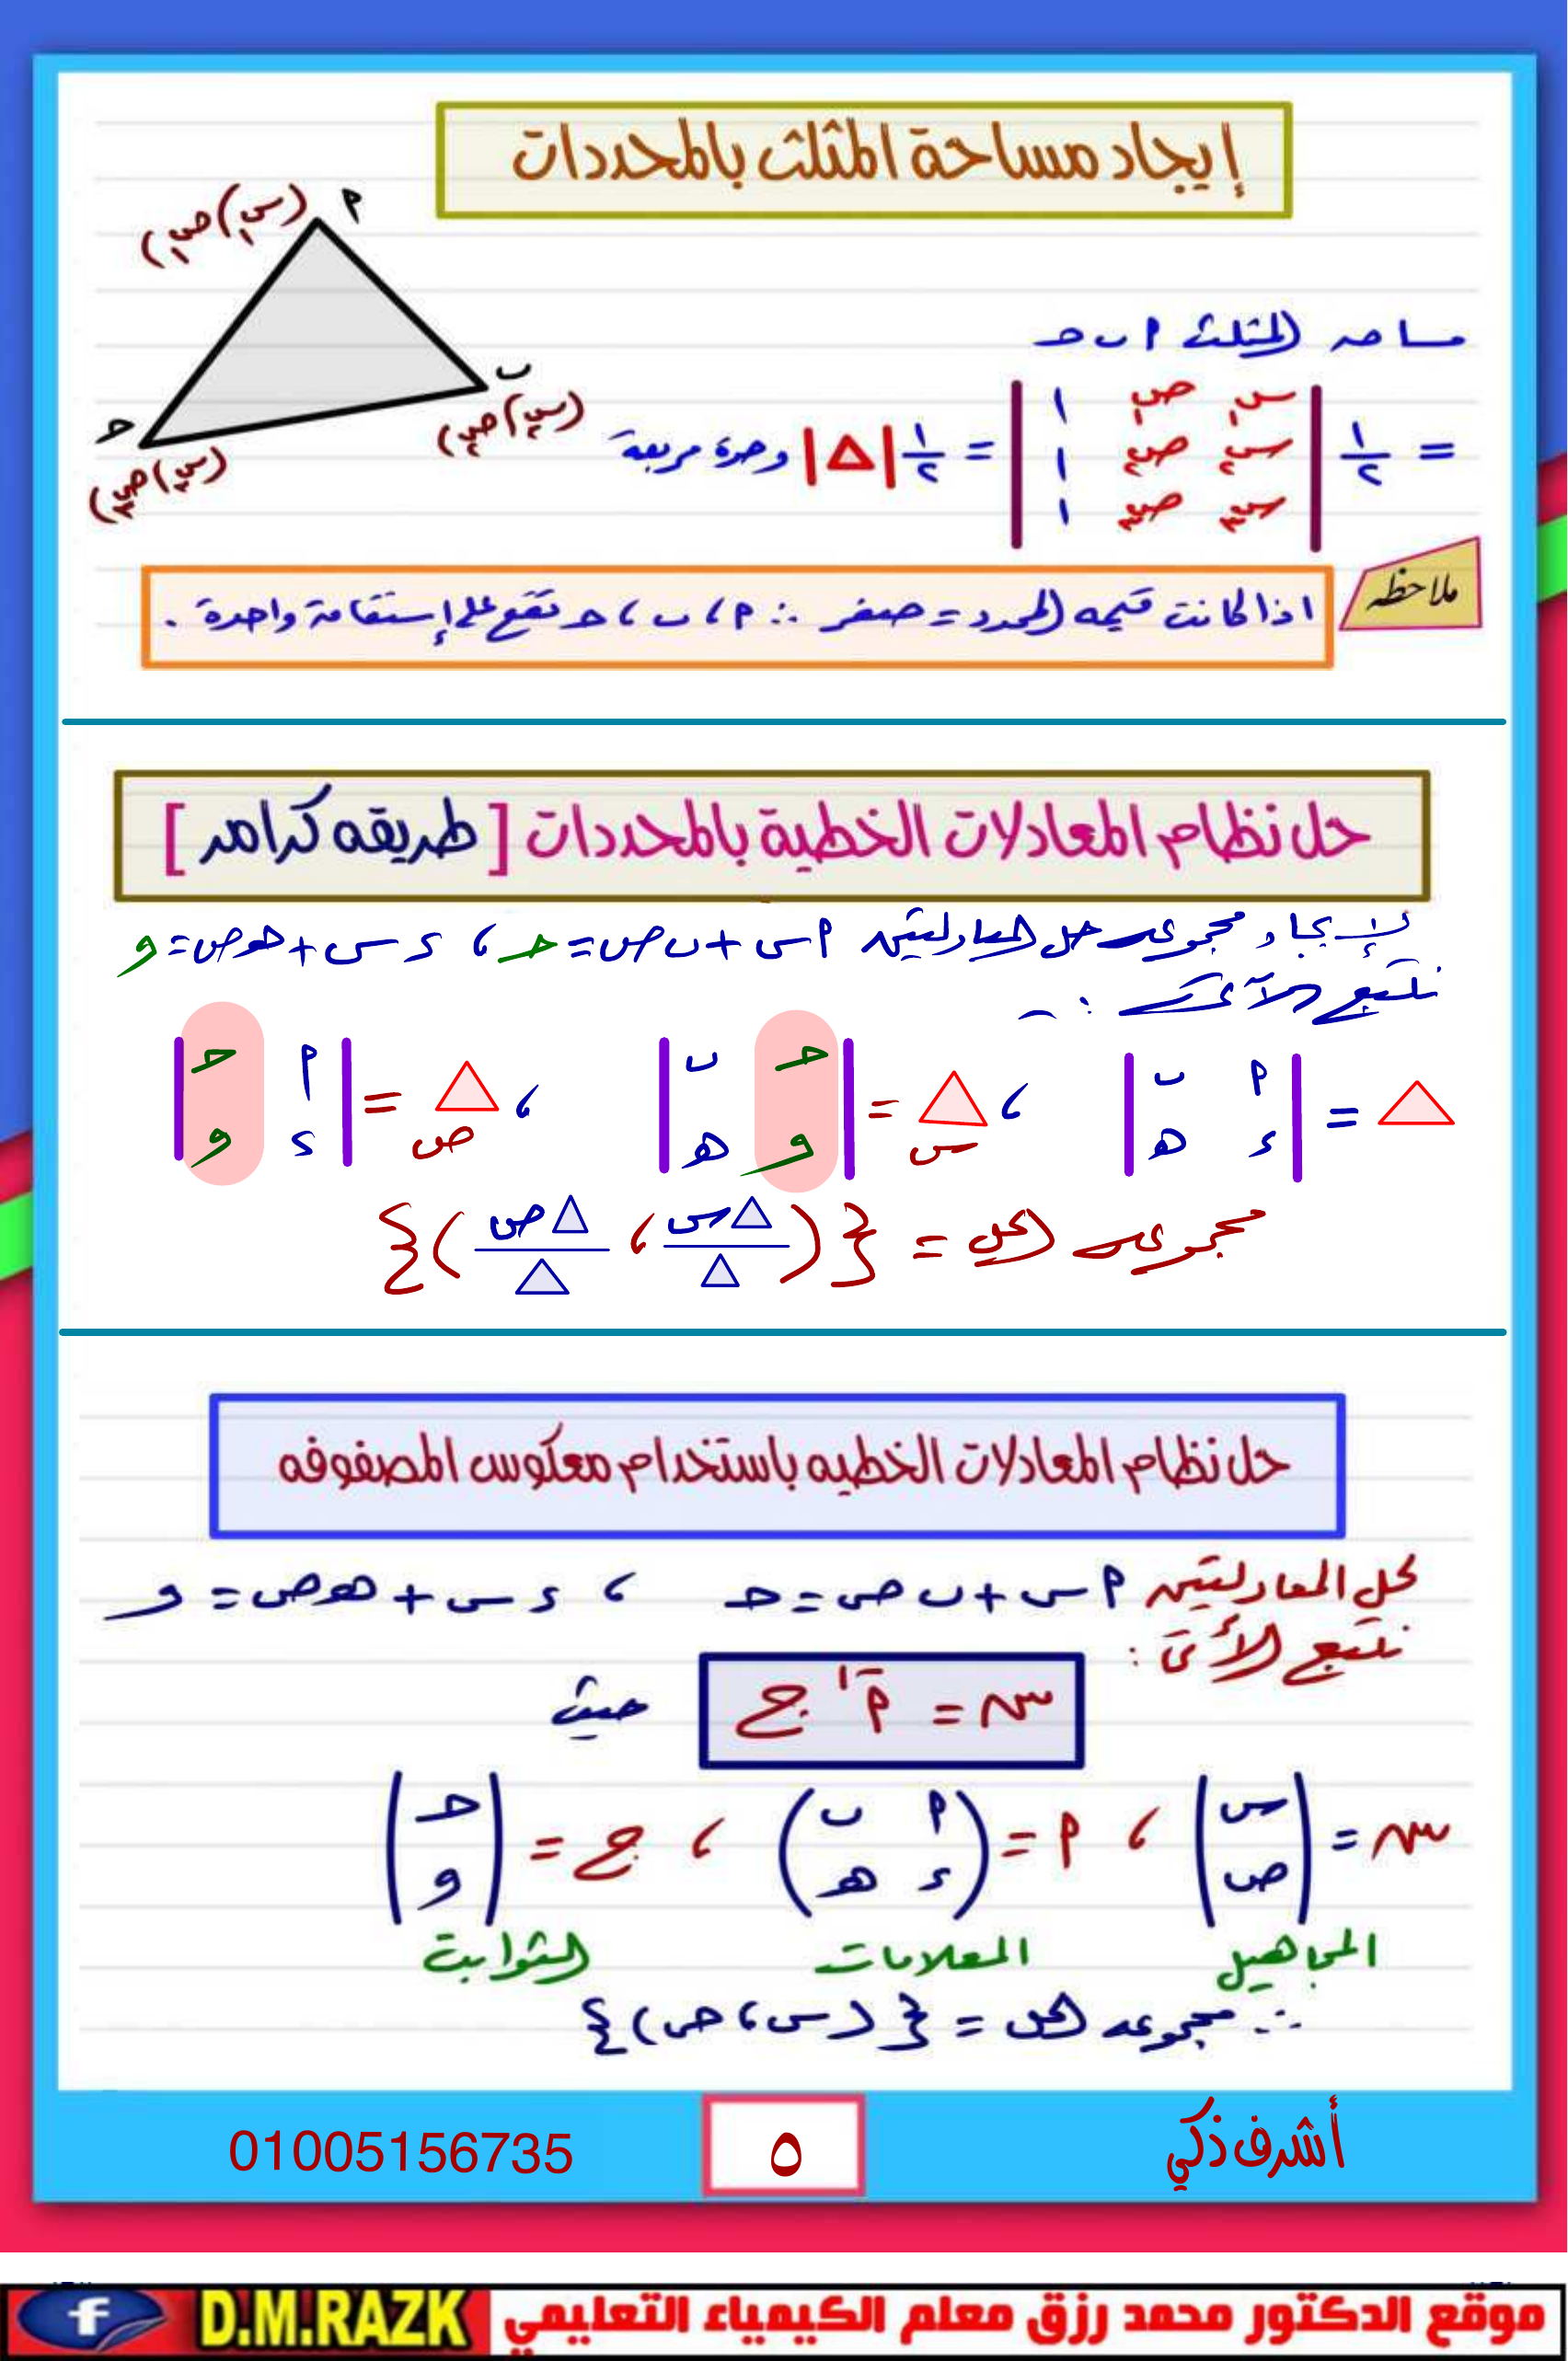 إيجاد مساحة المثلث بالمحددات
P (س١، ص١)
ب (س٢، ص٢)
حـ (س٣، ص٣)
مساحة المثلث P ب حـ
= ١/٢ | س١ ص١ ١ | = ١/٢ |△| وحدة مربعة
| س٢ ص٢ ١ |
| س٣ ص٣ ١ |
ملاحظه
اذا كانت قيمه المحدد = صفر ∴ P ، ب ، حـ تقع على إستقامة واحدة .
حل نظام المعادلات الخطية بالمحددات [ طريقه كرامر ]
لإيجاد مجموعه حل المعادلتين P س + ب ص = حـ ، ء س + هـ ص = و
نتبع الآتى : ـ
△ = | P ب | ، △س = | حـ ب | ، △ص = | P حـ |
| ء هـ | | و هـ | | ء و |
مجموعه الحل = { ( △س/△ ، △ص/△ ) }
حل نظام المعادلات الخطيه باستخدام معكوس المصفوفه
لحل المعادلتين P س + ب ص = حـ ، ء س + هـ ص = و
نتبع الأتى :
سـ = P⁻¹ جـ حيث
سـ = ( س ) ، P = ( P ب ) ، جـ = ( حـ )
( ص ) ( ء هـ ) ( و )
المجاهيل المعلامات الثوابت
∴ مجموعه الحل = { ( س ، ص ) }
أشرف ذكي
٥
01005156735
موقع الدكتور محمد رزق معلم الكيمياء التعليمي D.M.RAZK f